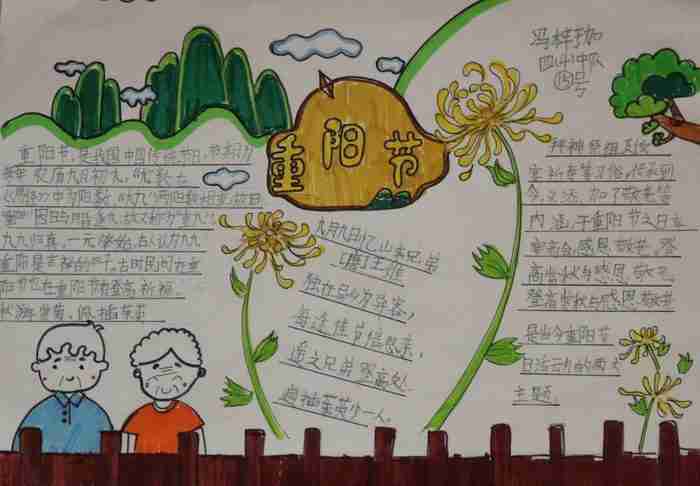 重阳节
冯梓珈
四(4)中队
15号
重阳节,是我国中国传统节日,节期为
每年农历九月初九,"九"数在
《易经》中为阳数,"九九"两阳数相重,故曰
"重阳"因日与月皆逢九,故又称为"重九"。
九九归真,一元肇始,古人认为九九
重阳是吉祥的日子。古时民间在重
阳节有在重阳节有登高祈福、
秋游赏菊、佩插茱萸
九月九日忆山东兄弟
[唐]王维
独在异乡为异客,
每逢佳节倍思亲,
遥知兄弟登高处,
遍插茱萸少一人。
拜神祭祖及饮
宴祈寿等习俗,传承到
今,又添加了敬老等
内涵,于重阳节之日享
宴高会,感恩敬老。登
高赏秋与感恩敬老
登高赏秋与感恩敬老
是当今重阳节
日活动的两大
主题。